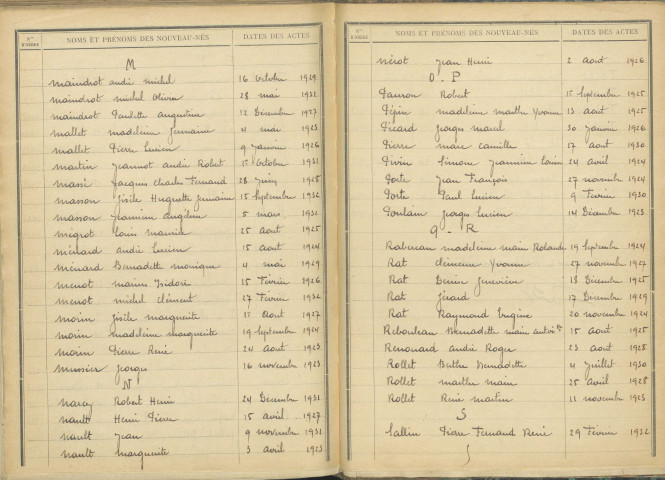 Nos D'ORDRE NOMS ET PRÉNOMS DES NOUVEAU-NÉS DATES DES ACTES
M
Maindrot André Michel 16 Octobre 1929
Maindrot Michel Olivier 28 mai 1932
Maindrot Paulette Augustine 12 Décembre 1927
Mallet Madeleine Germaine 4 mai 1923
Mallet Pierre Lucien 9 Janvier 1926
Martin Jeannot André Robert 15 Octobre 1931
Massé Jacques Charles Fernand 28 Juin 1925
Masson Gisèle Huguette Germaine 15 Septembre 1932
Masson Jeannine Angéline 5 mars 1931
Mégrot Louis Maurice 25 août 1925
Ménard André Lucien 15 août 1924
Ménard Bernadette Monique 4 mai 1929
Menot Marius Isidore 15 Février 1926
Menot Michel Clément 27 Février 1932
Morin Gisèle Marguerite 17 Août 1927
Morin Madeleine Marguerite 19 Septembre 1924
Morin Pierre René 24 août 1923
Mussier Georges 16 novembre 1923
N
Narcy Robert Henri 24 Décembre 1931
Nault Henri Pierre 15 avril 1927
Nault Jean 9 novembre 1931
Nault Marguerite 3 avril 1923
Nos D'ORDRE NOMS ET PRÉNOMS DES NOUVEAU-NÉS DATES DES ACTES
Nérot Jean Henri 2 août 1926
O - P
Pauron Robert 15 Septembre 1925
Pépin Madeleine Marthe Yvonne 13 août 1925
Picard Georges Marcel 30 Janvier 1926
Pierre Marc Camille 17 août 1930
Pivin Simone Jeannine Louise 24 avril 1924
Porte Jean François 27 novembre 1924
Porte Paul Lucien 9 Février 1930
Poulain Georges Lucien 14 Décembre 1923
Q - R
Rabereau Madeleine Marie Rolande 19 Septembre 1924
Rat Clémence Yvonne 27 novembre 1927
Rat Denise Geneviève 18 Décembre 1925
Rat Gérard 17 Décembre 1929
Rat Raymond Eugène 20 novembre 1924
Rebouleau Bernadette Marie 15 août 1925
Renouard André Roger 23 août 1928
Rollet Berthe Bernadette 4 Juillet 1930
Rollet Marthe Marie 25 avril 1928
Rollet René Martin 11 novembre 1923
S
Sallin Pierre Fernand René 29 Février 1932